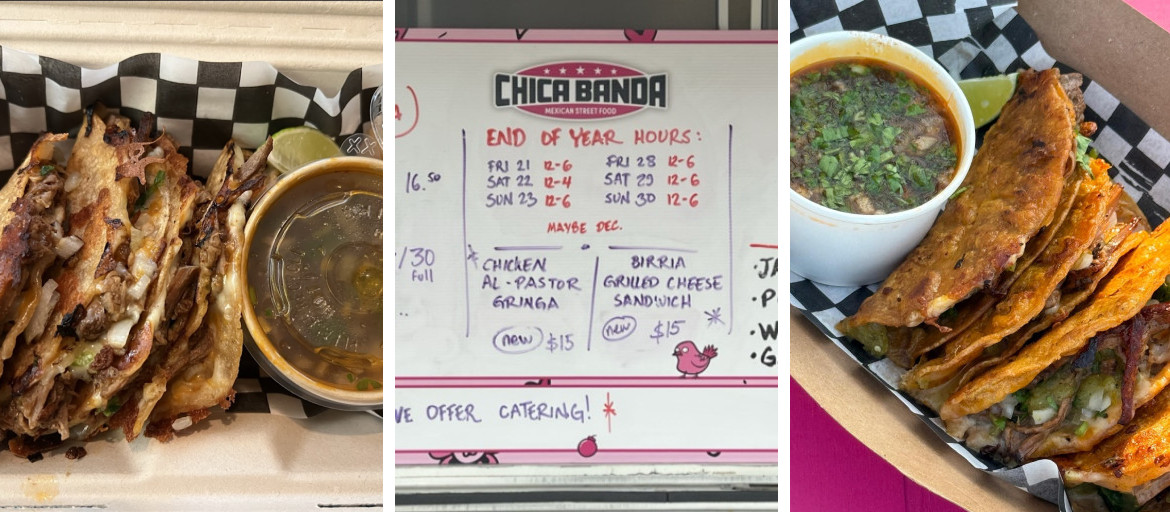 16.50
/30
Full
CHICA BANDA
MEXICAN STREET FOOD
END OF YEAR HOURS:
FRI 21 12-6
SAT 22 12-4
SUN 23 12-6
FRI 28 12-6
SAT 29 12-6
SUN 30 12-6
MAYBE DEC.
CHICKEN
AL-PASTOR
GRINGA
new $15
BIRRIA
GRILLED CHEESE
SANDWICH
new $15
VE OFFER CATERING!
·JA
·P
·W
·G